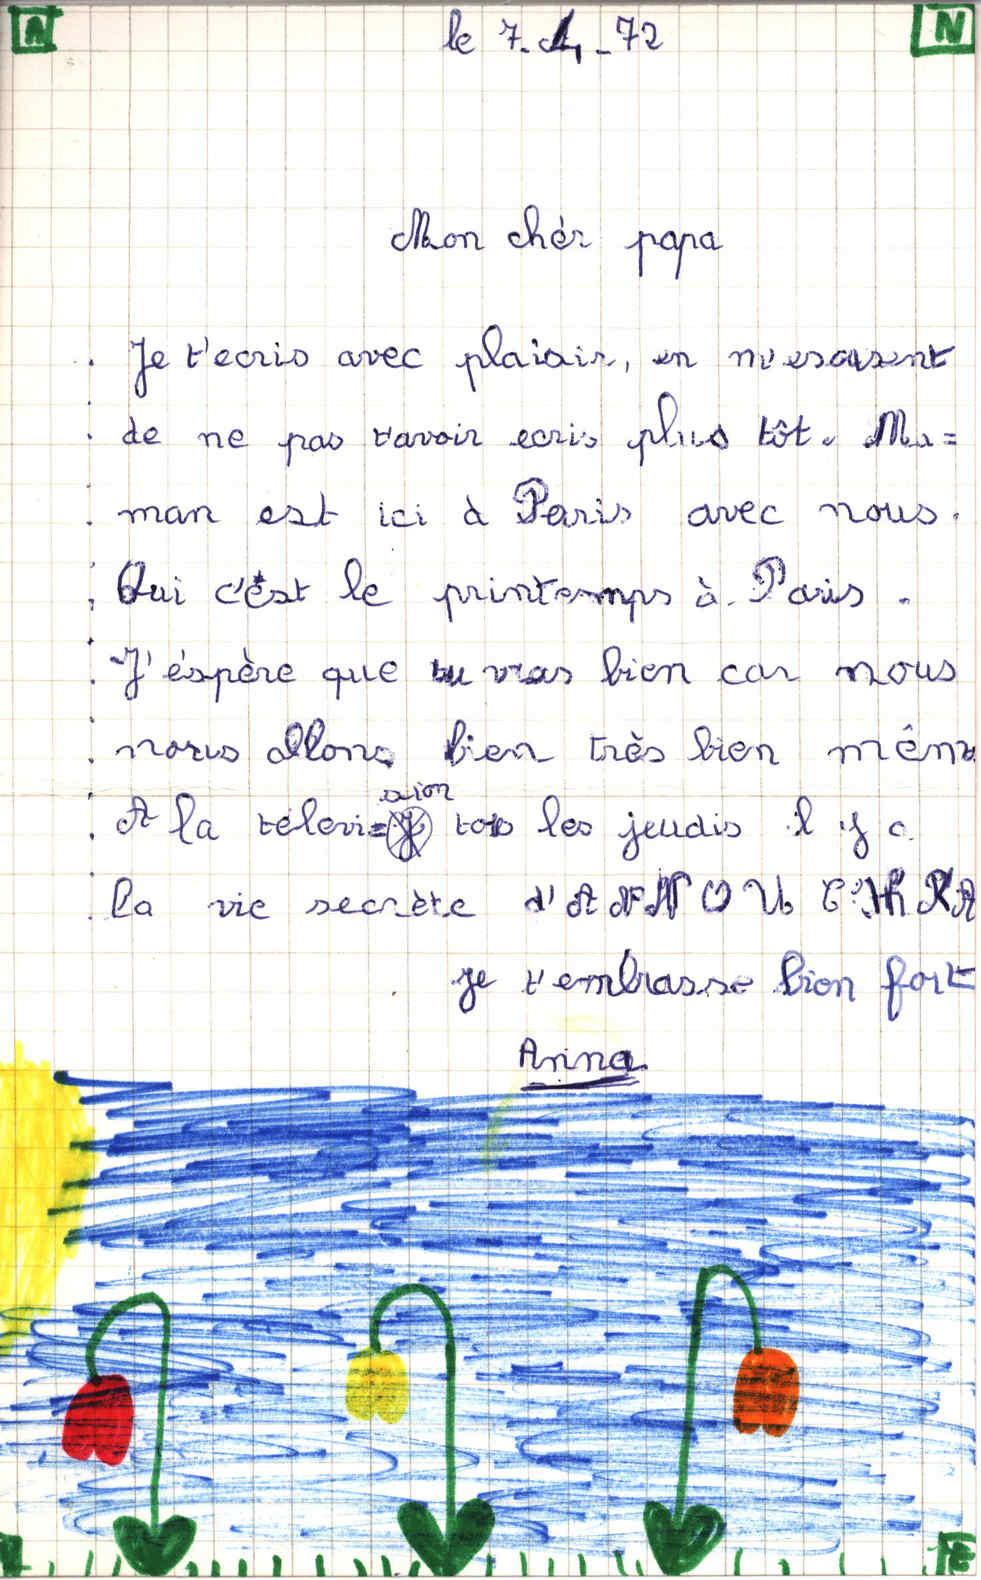 N N
le 7-4-72
Mon chér papa
Je t'ecris avec plaisir, en m'escusent
de ne pas t'avoir ecris plus tôt. Ma=
man est ici à Paris avec nous.
Oui c'ést le printemps à Paris.
J'éspère que tu vas bien car nous
nous allons bien très bien même
A la televi=sion tous les jeudis il y a
La vie secrète d'ANNOUCHKA
je t'embrasse bien fort
Anna
E